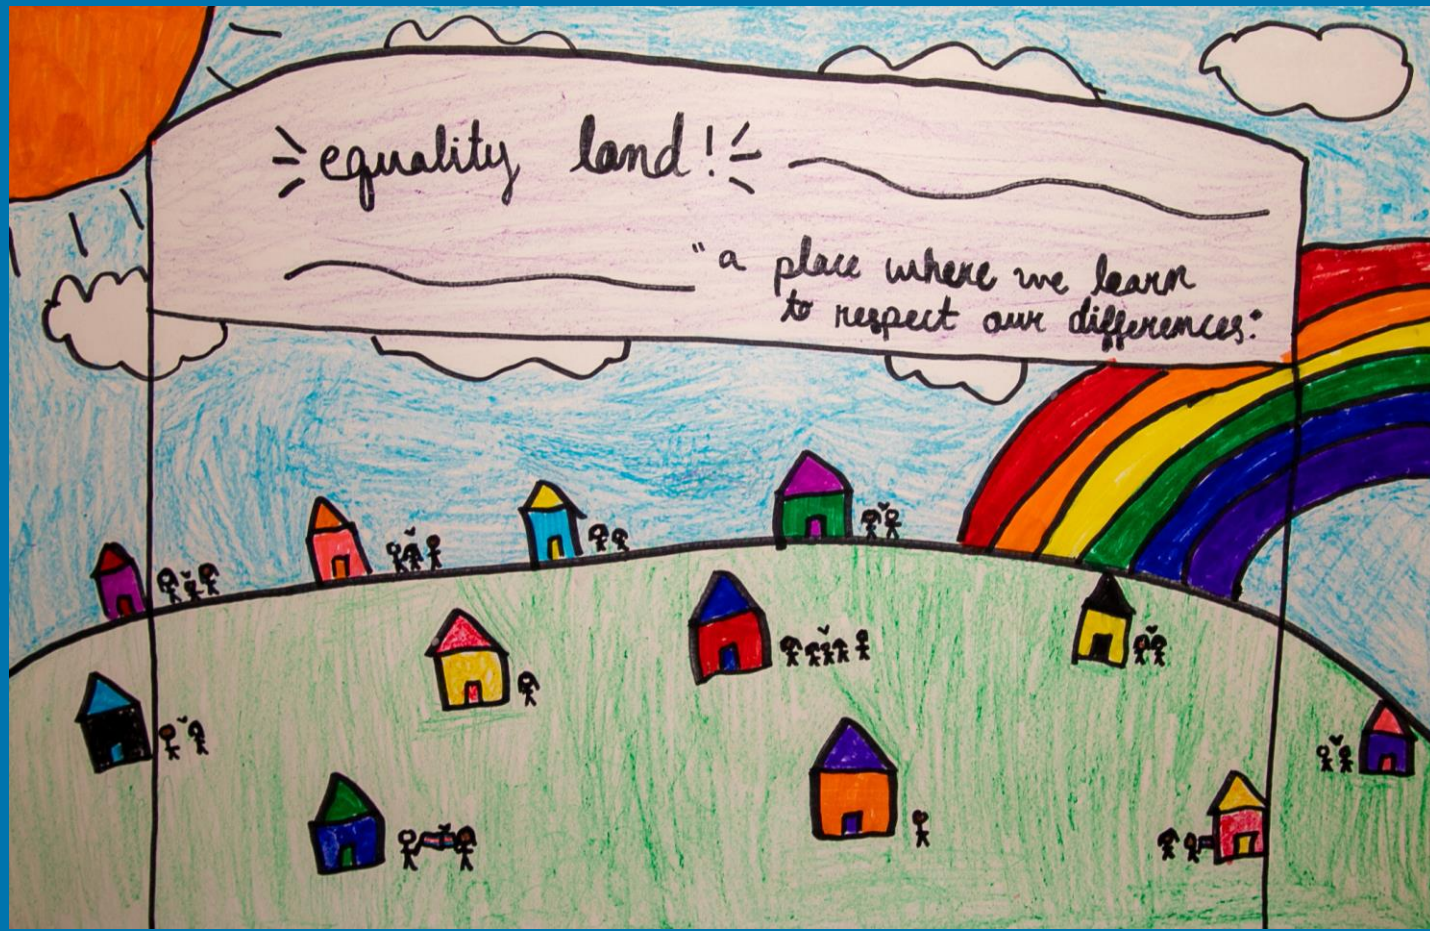 equality land!
"a place where we learn
to respect our differences."